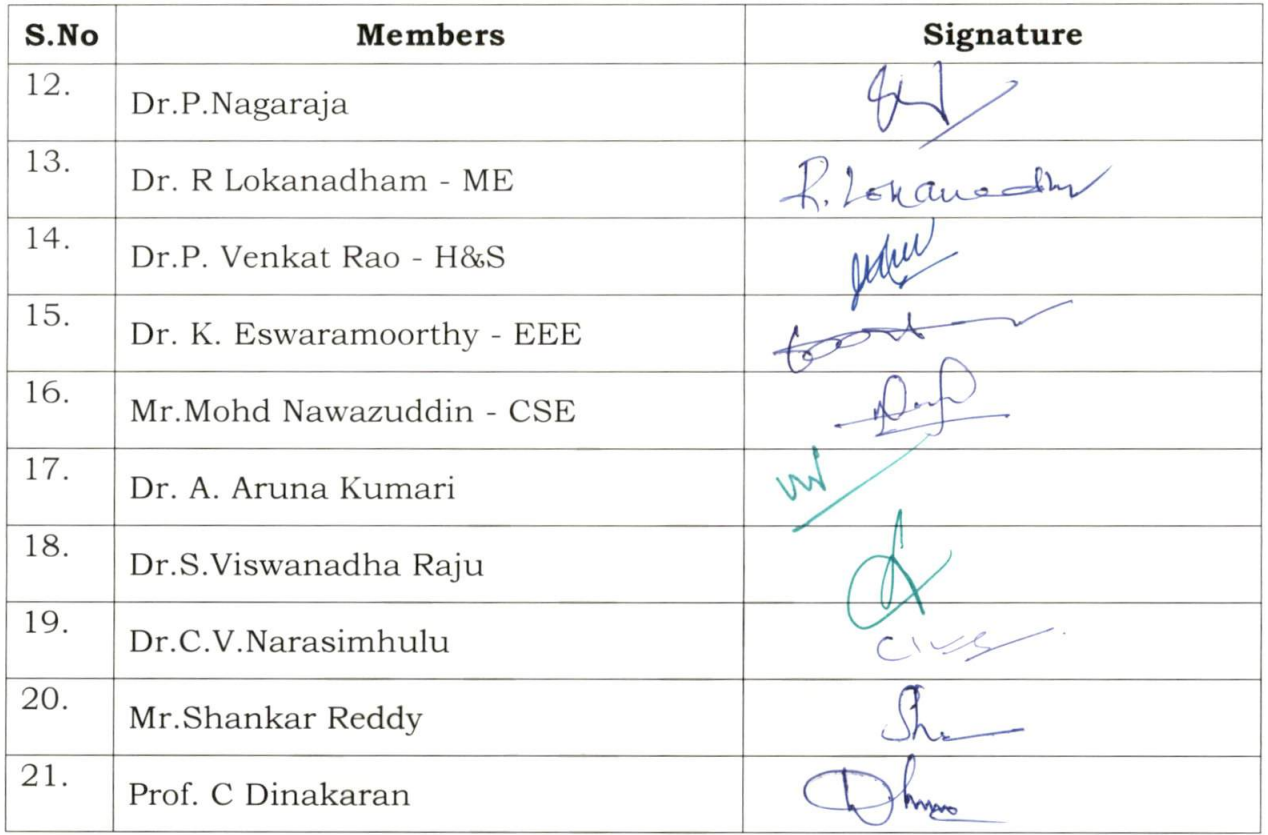 S.No Members Signature
12. Dr.P.Nagaraja
13. Dr. R Lokanadham - ME R. Lokanadham
14. Dr.P. Venkat Rao - H&S
15. Dr. K. Eswaramoorthy - EEE
16. Mr.Mohd Nawazuddin - CSE
17. Dr. A. Aruna Kumari
18. Dr.S.Viswanadha Raju
19. Dr.C.V.Narasimhulu
20. Mr.Shankar Reddy
21. Prof. C Dinakaran